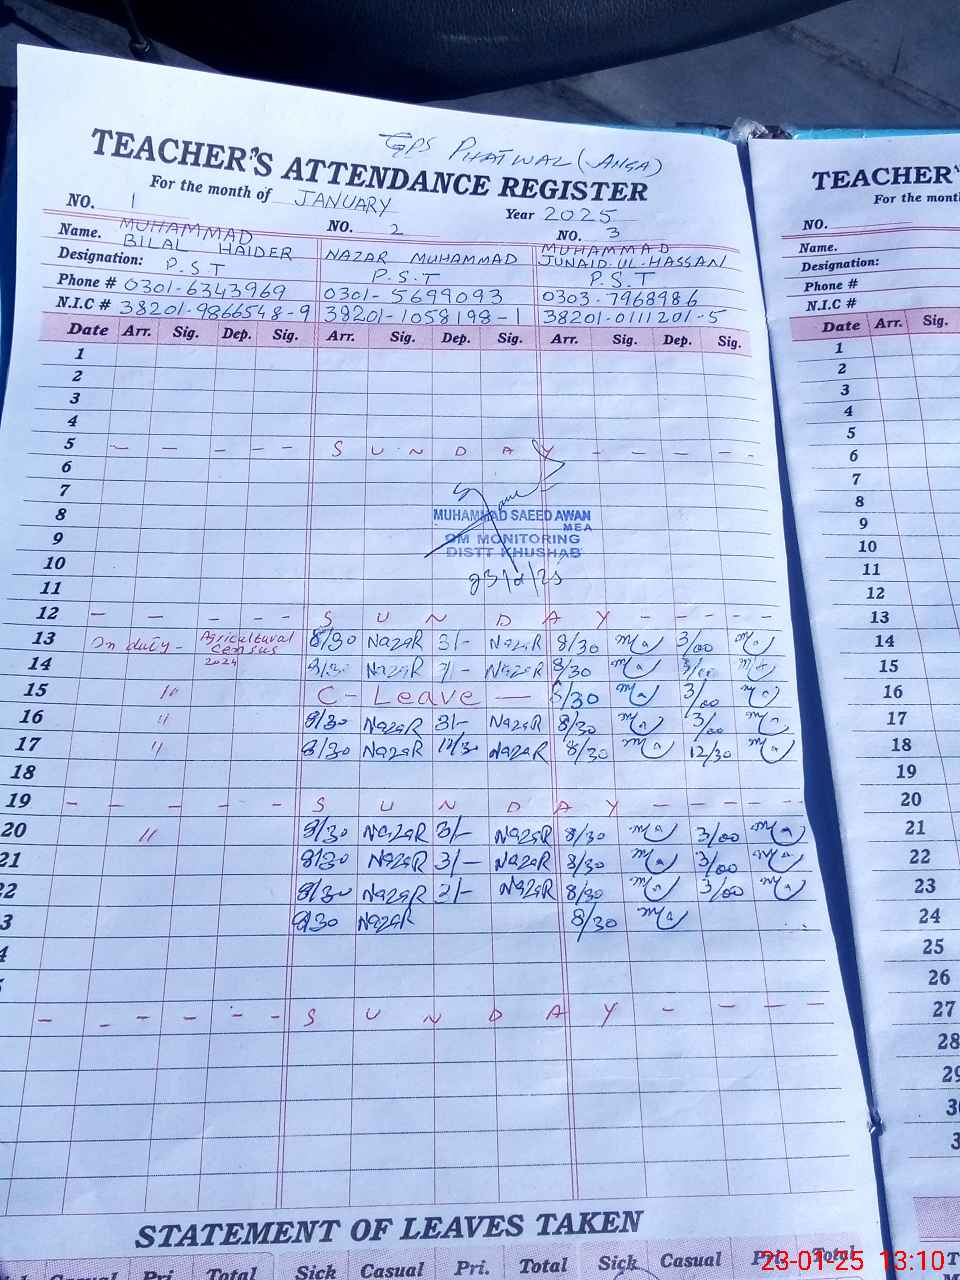 GPS PHATWAL (ANGA)
TEACHER'S ATTENDANCE REGISTER
For the month of JANUARY Year 2025
NO. 1 NO. 2 NO. 3
Name. MUHAMMAD BILAL HAIDER NAZAR MUHAMMAD MUHAMMAD JUNAID-UL-HASSAN
Designation: P.S.T P.S.T P.S.T
Phone # 0301-6343969 0301-5699093 0303-7968986
N.I.C # 38201-9866548-9 38201-1058198-1 38201-0111201-5
Date Arr. Sig. Dep. Sig. Arr. Sig. Dep. Sig. Arr. Sig. Dep. Sig.
1
2
3
4
5 - - - - - S U N D A Y - - - -
6
7
8 MUHAMMAD SAEED AWAN
MEA
9 CM MONITORING
DISTT KHUSHAB
10
11
12 - - - - - S U N D A Y - - - -
13 On duty - Agricultural Census 2024 8/30 NazaR 3/- NazaR 8/30 3/00
14 8/30 NazaR 3/- NazaR 8/30 3/00
15 " C - Leave — 8/30 3/00
16 " 8/30 NazaR 3/- NazaR 8/30 3/00
17 " 8/30 NazaR 12/30 NazaR 8/30 12/30
18
19 - - - - - - S U N D A Y - - - - -
20 " 8/30 NazaR 3/- NazaR 8/30 3/00
21 8/30 NazaR 3/- NazaR 8/30 3/00
22 8/30 NazaR 3/- NazaR 8/30 3/00
3 8/30 NazaR 8/30
4
- - - - - - S U N D A Y - - - -
STATEMENT OF LEAVES TAKEN
Casual Pri. Total Sick Casual Pri. Total Sick Casual Pri. Total
TEACHER'
For the month
NO.
Name.
Designation:
Phone #
N.I.C #
Date Arr. Sig.
1
2
3
4
5
6
7
8
9
10
11
12
13
14
15
16
17
18
19
20
21
22
23
24
25
26
27
28
29
30
3
23-01-25 13:10